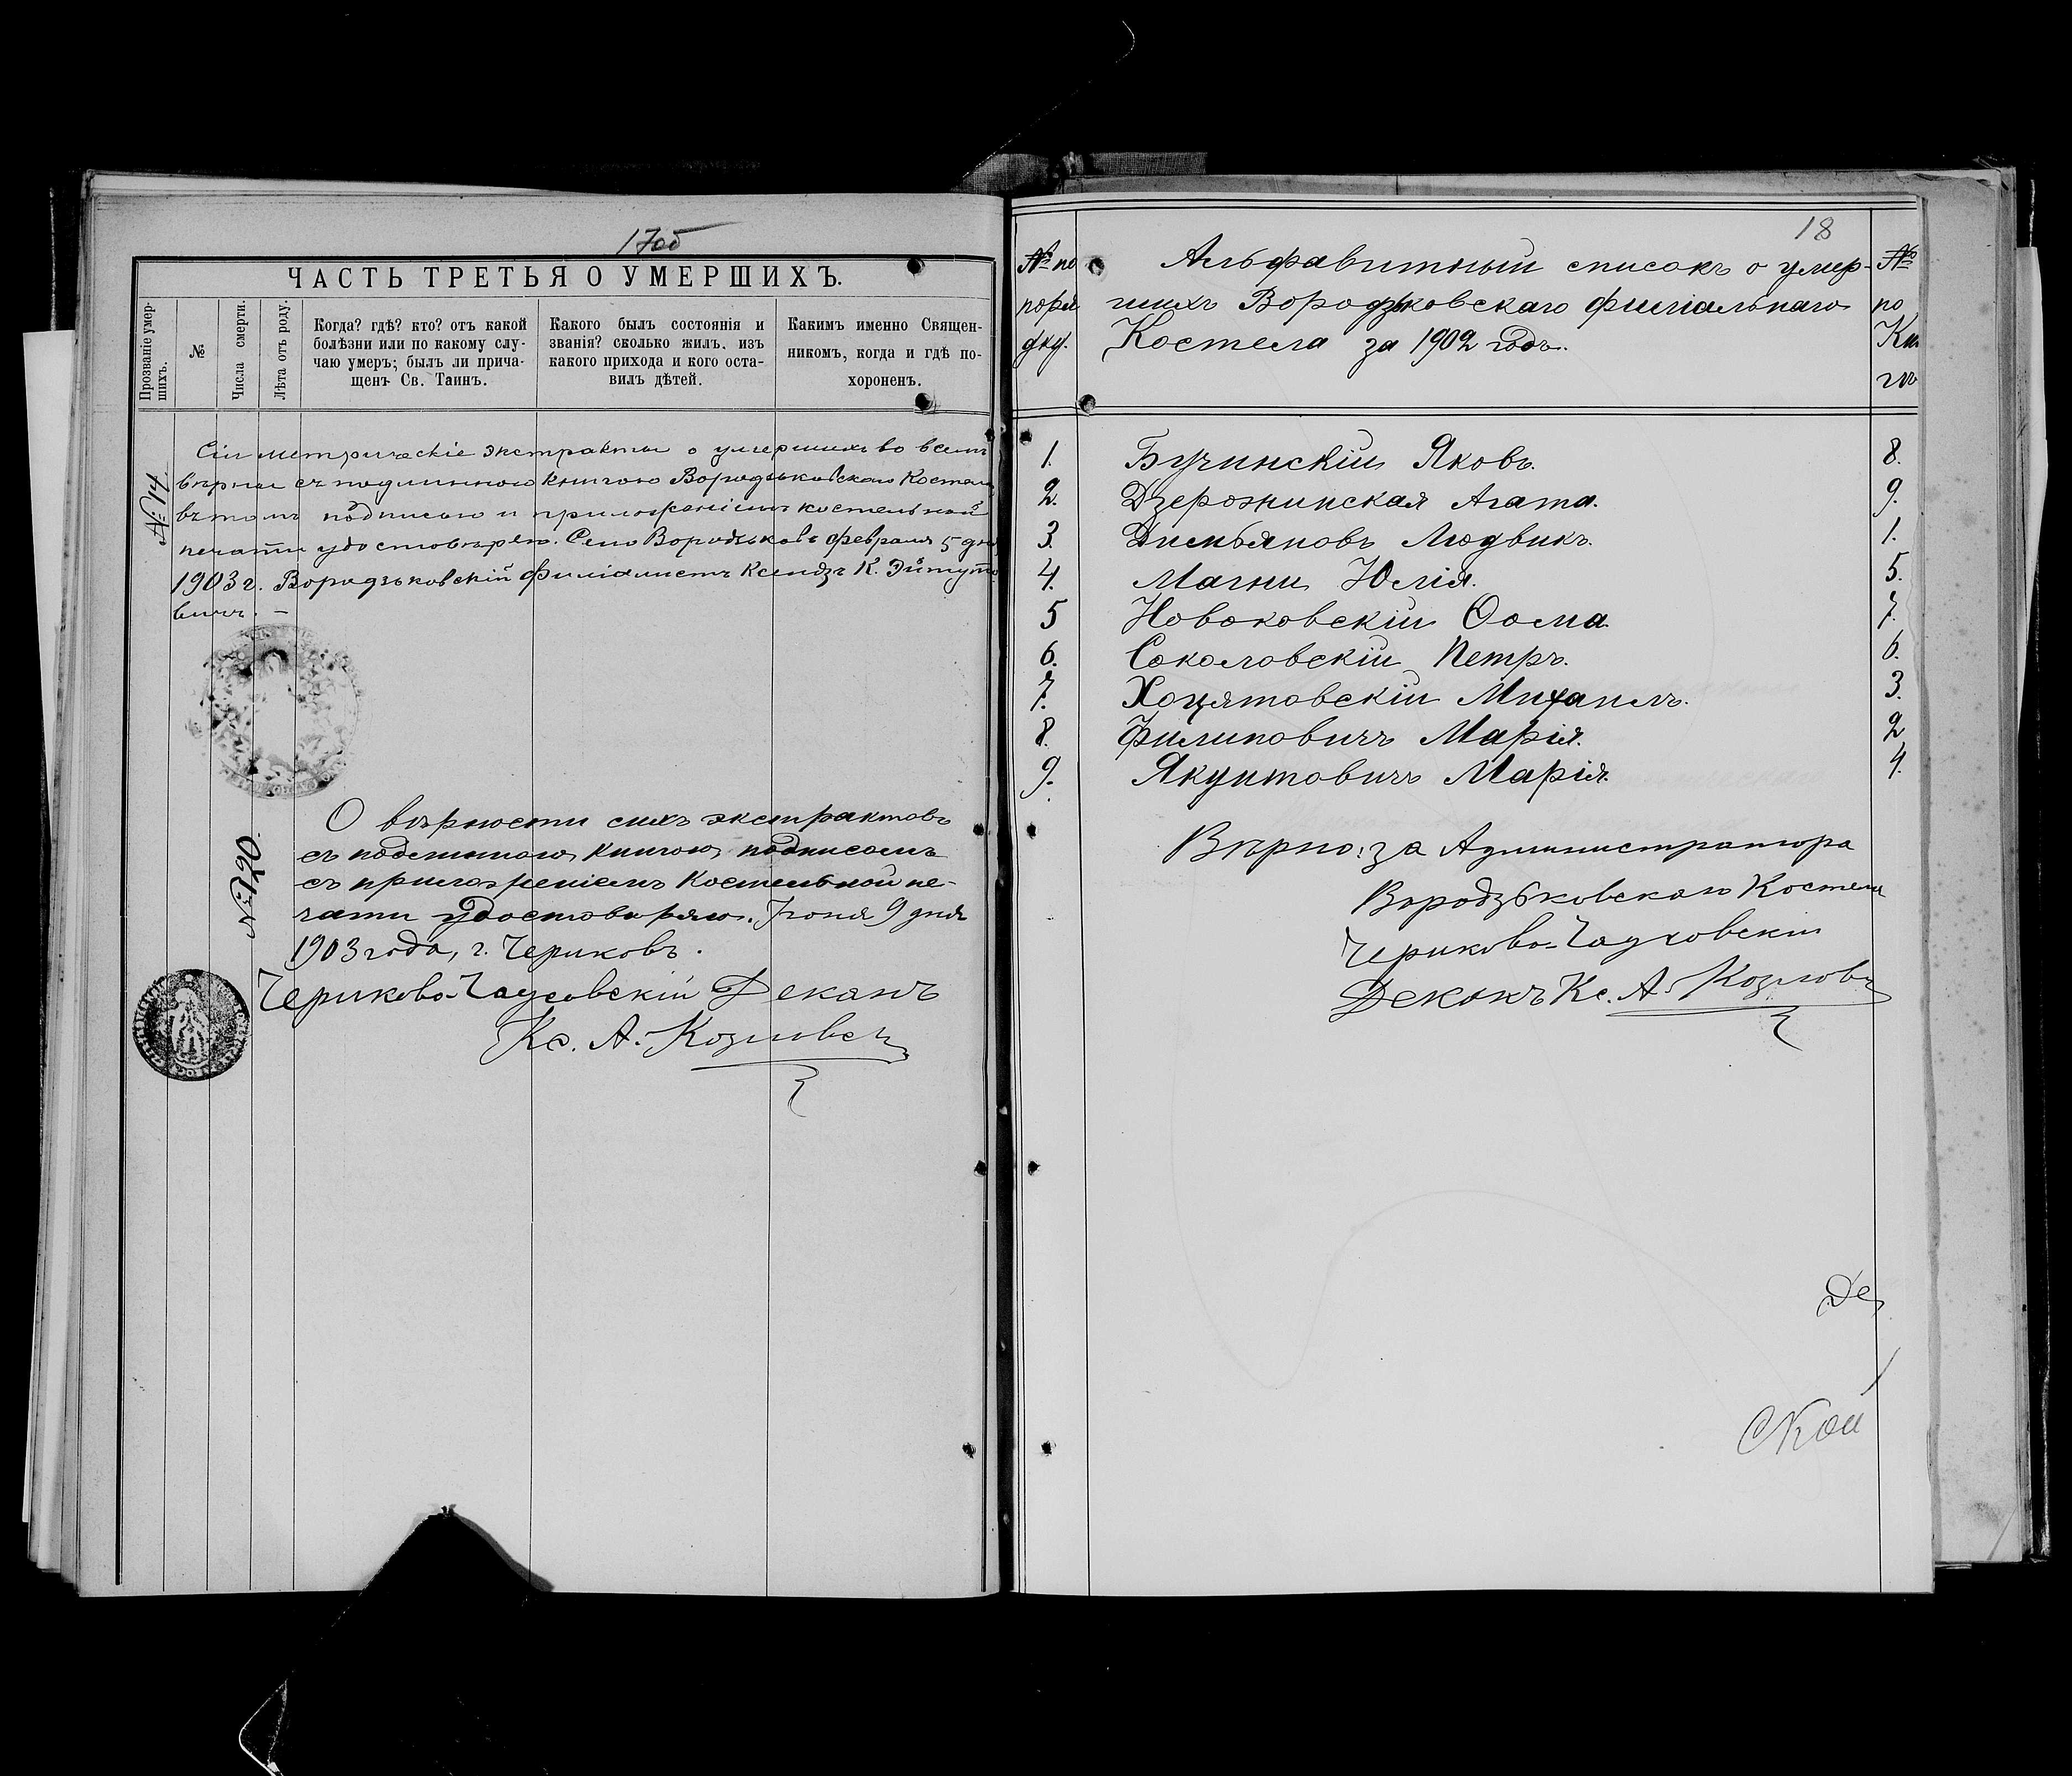 17об
ЧАСТЬ ТРЕТЬЯ О УМЕРШИХЪ.
Прозваніе умер-
шихъ.
№
Числа смерти.
Лѣта отъ роду.
Когда? гдѣ? кто? отъ какой
болѣзни или по какому слу-
чаю умеръ; былъ ли прича-
щенъ Св. Таинъ.
Какого былъ состоянія и
званія? сколько жилъ, изъ
какого прихода и кого оста-
вилъ дѣтей.
Какимъ именно Священ-
никомъ, когда и гдѣ по-
хороненъ.
№ 14.
Сіи метрическіе экстракты о умершихъ во всемъ
вѣрны съ подлинною книгою Вородзьковскаго Костела
въ томъ подписью и приложеніемъ костельной
печати удостовѣряю. Село Вородзьковъ февраля 5 дня
1903 г. Вородзьковскій Филіалистъ Ксендзъ К. Эйтуто
вичъ. —
О вѣрности сихъ экстрактовъ
съ подлинною книгою подписомъ
съ приложеніемъ Костельной пе-
чати удостовѣряю. Іюня 9 дня
1903 года, г. Чериковъ.
Чериково-Чаусовскій Деканъ
Кс. А. Козловскъ
№ 190
18
№ по
поря
дку.
Альфавитный списокъ о умер-
шихъ Вородзьковскаго филіальнаго
Костела за 1902 годъ.
№
по
Кни
гѣ
1. Бучинскій Яковъ. 8.
2. Дзерожинская Агата. 9.
3. Дисмьяновъ Людвикъ. 1.
4. Магни Юлія. 5.
5 Новаковскій Ѳома. 7.
6. Соколовскій Петръ. 6.
7. Хоцятовскій Михаилъ. 3.
8. Филиповичъ Марія. 2
9. Якунтовичъ Марія. 4.
Вѣрно: за Администратора
Вородзьковскаго Костела
Чериково-Чаусовскій
Деканъ Кс. А. Козловъ
Де
ской